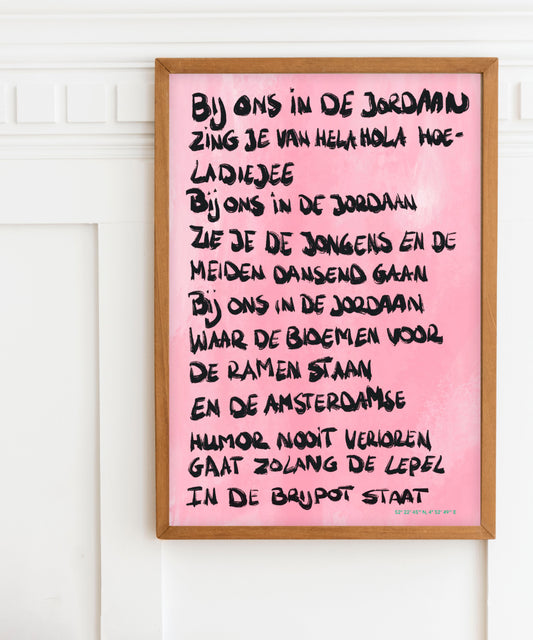 BIJ ONS IN DE JORDAAN
ZING JE VAN HELA HOLA HOE-
LADIEJEE
BIJ ONS IN DE JORDAAN
ZIE JE DE JONGENS EN DE
MEIDEN DANSEND GAAN
BIJ ONS IN DE JORDAAN
WAAR DE BLOEMEN VOOR
DE RAMEN STAAN
EN DE AMSTERDAMSE
HUMOR NOOIT VERLOREN
GAAT ZOLANG DE LEPEL
IN DE BRIJPOT STAAT
52° 22' 45'' N, 4° 52' 49'' E